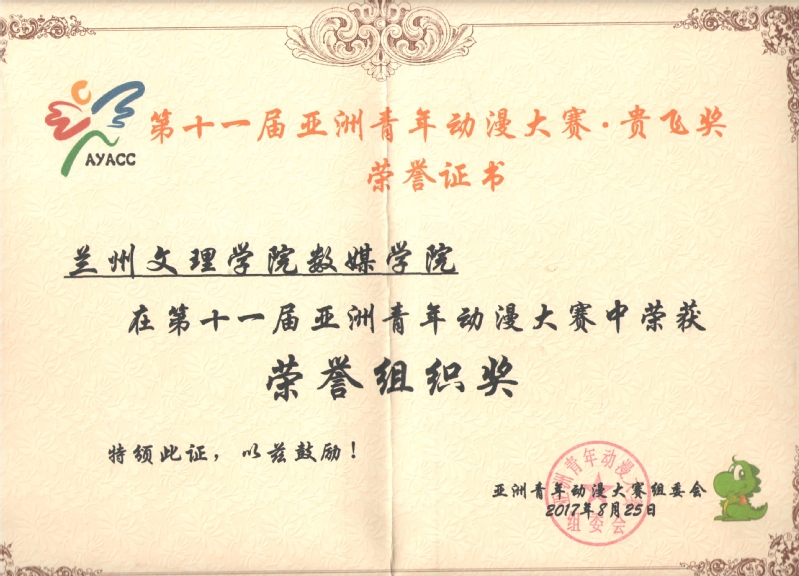 AYACC
第十一届亚洲青年动漫大赛·贵飞奖
荣誉证书
兰州文理学院数媒学院
在第十一届亚洲青年动漫大赛中荣获
荣誉组织奖
特颁此证，以兹鼓励！
亚洲青年动漫大赛组委会
2017年8月25日
亚洲青年动漫大赛
组委会